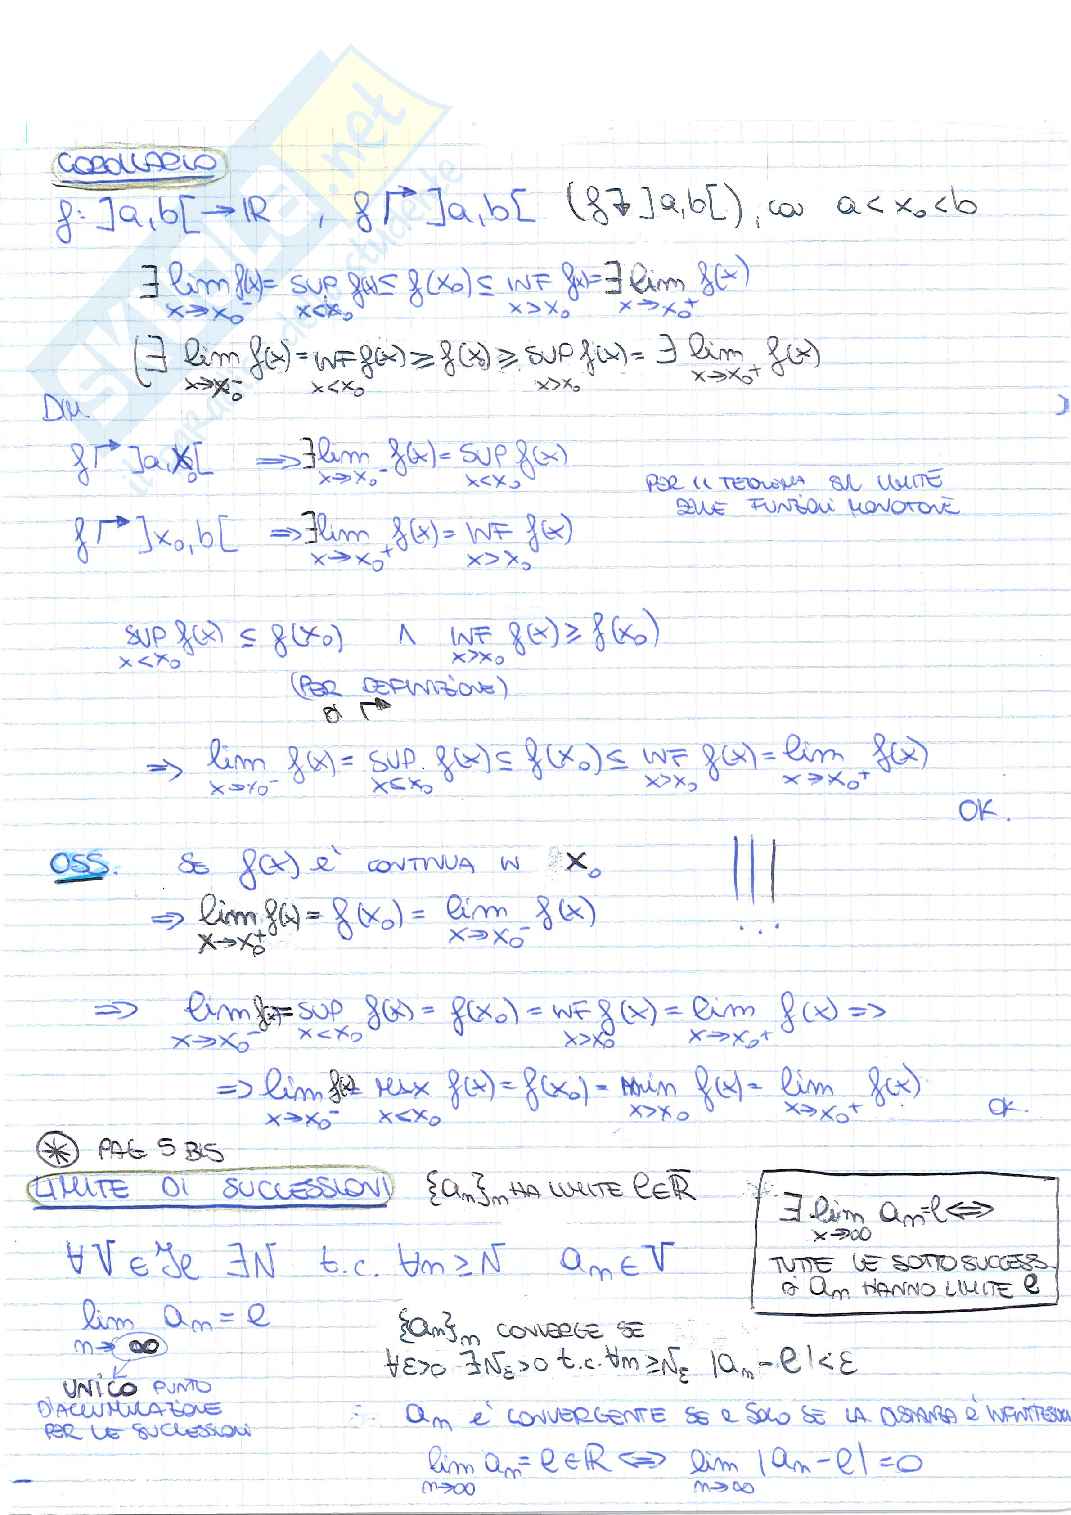 COROLLARIO
f: ]a,b[ → ℝ , f ↗ ]a,b[ (f ↘ ]a,b[), con a < x₀ < b
∃ lim_{x→x₀⁻} f(x) = SUP_{x<x₀} f(x) ≤ f(x₀) ≤ INF_{x>x₀} f(x) = ∃ lim_{x→x₀⁺} f(x)
(∃ lim_{x→x₀⁻} f(x) = INF_{x<x₀} f(x) ≥ f(x₀) ≥ SUP_{x>x₀} f(x) = ∃ lim_{x→x₀⁺} f(x)
)
DIM.
f ↗ ]a,x₀[ ⟹ ∃ lim_{x→x₀⁻} f(x) = SUP_{x<x₀} f(x)
PER IL TEOREMA SUL LIMITE
DELLE FUNZIONI MONOTONE
f ↗ ]x₀,b[ ⟹ ∃ lim_{x→x₀⁺} f(x) = INF_{x>x₀} f(x)
SUP_{x<x₀} f(x) ≤ f(x₀) ∧ INF_{x>x₀} f(x) ≥ f(x₀)
(PER DEFINIZIONE)
DI ↗
⟹ lim_{x→x₀⁻} f(x) = SUP_{x<x₀} f(x) ≤ f(x₀) ≤ INF_{x>x₀} f(x) = lim_{x→x₀⁺} f(x)
OK.
OSS. SE f(x) È CONTINUA IN x₀
!!!
⟹ lim_{x→x₀⁺} f(x) = f(x₀) = lim_{x→x₀⁻} f(x)
⟹ lim_{x→x₀⁻} f(x) = SUP_{x<x₀} f(x) = f(x₀) = INF_{x>x₀} f(x) = lim_{x→x₀⁺} f(x) ⟹
⟹ lim_{x→x₀⁻} f(x) = max_{x<x₀} f(x) = f(x₀) = min_{x>x₀} f(x) = lim_{x→x₀⁺} f(x)
OK.
⊛ PAG 5 BIS
LIMITE DI SUCCESSIONI {aₙ}ₙ HA LIMITE ℓ ∈ ℝ̅
∃ lim_{x→∞} aₙ = ℓ ⟺
TUTTE LE SOTTOSUCCESS.
DI aₙ HANNO LIMITE ℓ
∀ V ∈ ℐℓ ∃N t.c. ∀n ≥ N aₙ ∈ V
lim_{n→∞} aₙ = ℓ
UNICO PUNTO
D'ACCUMULAZIONE
PER LE SUCCESSIONI
{aₙ}ₙ CONVERGE SE
∀ε>0 ∃N_ε>0 t.c. ∀n≥N_ε |aₙ - ℓ| < ε
∴ aₙ È CONVERGENTE SE E SOLO SE LA DISTANZA È INFINITESIMA
lim_{n→∞} aₙ = ℓ ∈ ℝ ⟺ lim_{n→∞} |aₙ - ℓ| = 0
SKUOLA.net